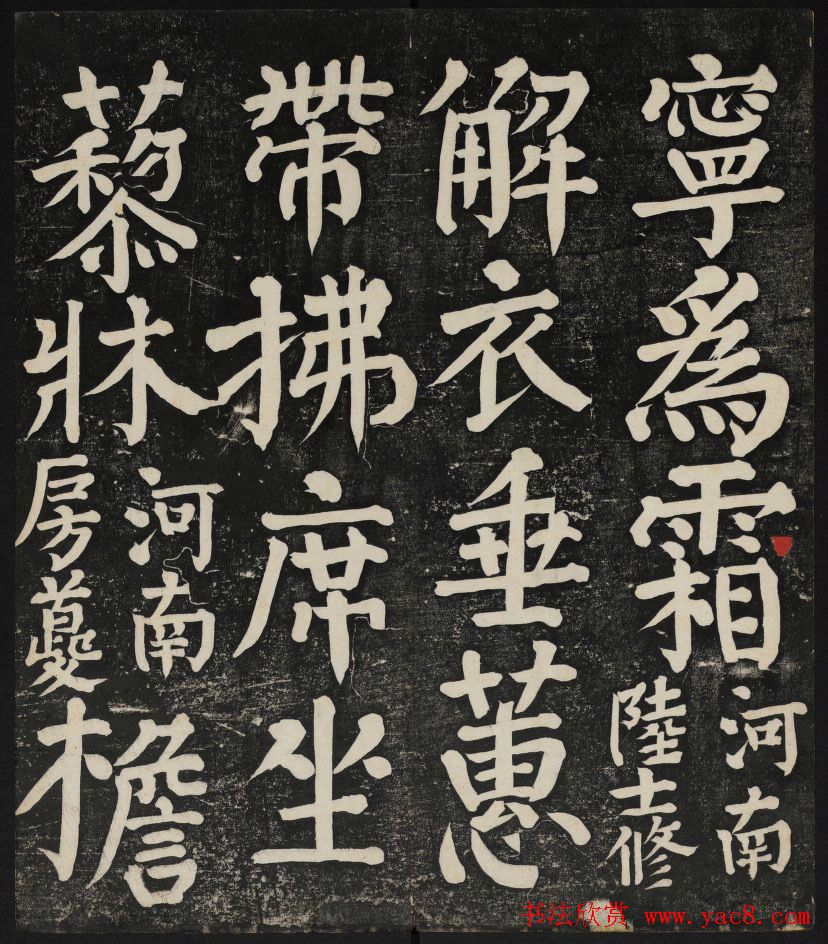 寧爲霜
河南
陸士修
解衣垂蕙
帶拂席坐
藜牀
河南
房夔
檐
书法欣赏 www.yac8.com